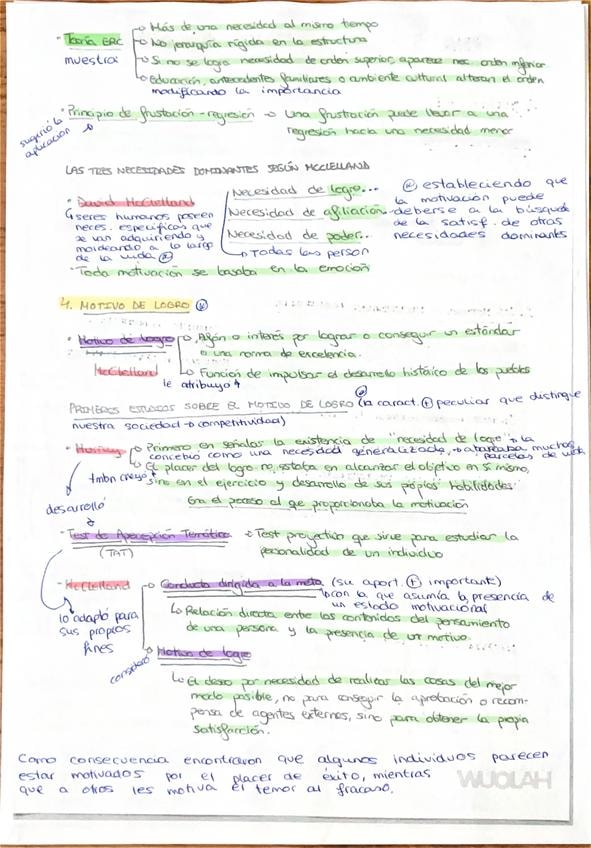 · Teoría ERC
muestra:
→ Más de una necesidad al mismo tiempo
→ No jerarquía rígida en la estructura
→ Si no se logra necesidad de orden superior, aparece nec. orden inferior
→ Educación, antecedentes familiares o ambiente cultural alteran el orden
modificando la importancia
· Principio de frustación-regresión → Una frustración puede llevar a una
regresión hacia una necesidad menor
sugirió la
aplicación
LAS TRES NECESIDADES DOMINANTES SEGÚN MCCLELLAND
· David McClelland
↳ seres humanos poseen
neces. específicas que
se van adquiriendo y
moldeando a lo largo
de la vida
Necesidad de logro...
Necesidad de afiliación
Necesidad de poder...
→ Todas las person
estableciendo que
la motivación puede
deberse a la búsqueda
de la satisf. de otras
necesidades dominantes
· Toda motivación se basaba en la emoción
4. MOTIVO DE LOGRO
· Motivo de logro
→ Afán o interés por lograr o conseguir un estándar
o una norma de excelencia.
→ Función de impulsar el desarrollo histórico de los pueblos
McClelland
le atribuyo
PRIMEROS ESTUDIOS SOBRE EL MOTIVO DE LOGRO (la caract. + peculiar que distingue
nuestra sociedad → competitividad)
· Murray
→ Primero en señalar la existencia de "necesidad de logro" → la
concebía como una necesidad generalizada, → abarcaba muchas
parcelas de vida
tmbn creyó
→ El placer del logro no estaba en alcanzar el objetivo en sí mismo,
sino en el ejercicio y desarrollo de sus propias habilidades
Era el proceso el que proporcionaba la motivación
desarrolló
· Test de Apercepción Temático
(TAT)
→ Test proyectivo que sirve para estudiar la
personalidad de un individuo
· McClelland
lo adaptó para
sus propios
fines
→ Conducta dirigida a la meta (su aport. + importante)
con la que asumía la presencia de
un estado motivacional
↳ Relación directa entre los contenidos del pensamiento
de una persona y la presencia de un motivo.
consideró
Motivo de logro
↳ El deseo por necesidad de realizar las cosas del mejor
modo posible, no para conseguir la aprobación o recom-
pensa de agentes externos, sino para obtener la propia
satisfacción.
Como consecuencia encontraron que algunos individuos parecen
estar motivados por el placer de éxito, mientras
que a otros les motiva el temor al fracaso.
WUOLAH